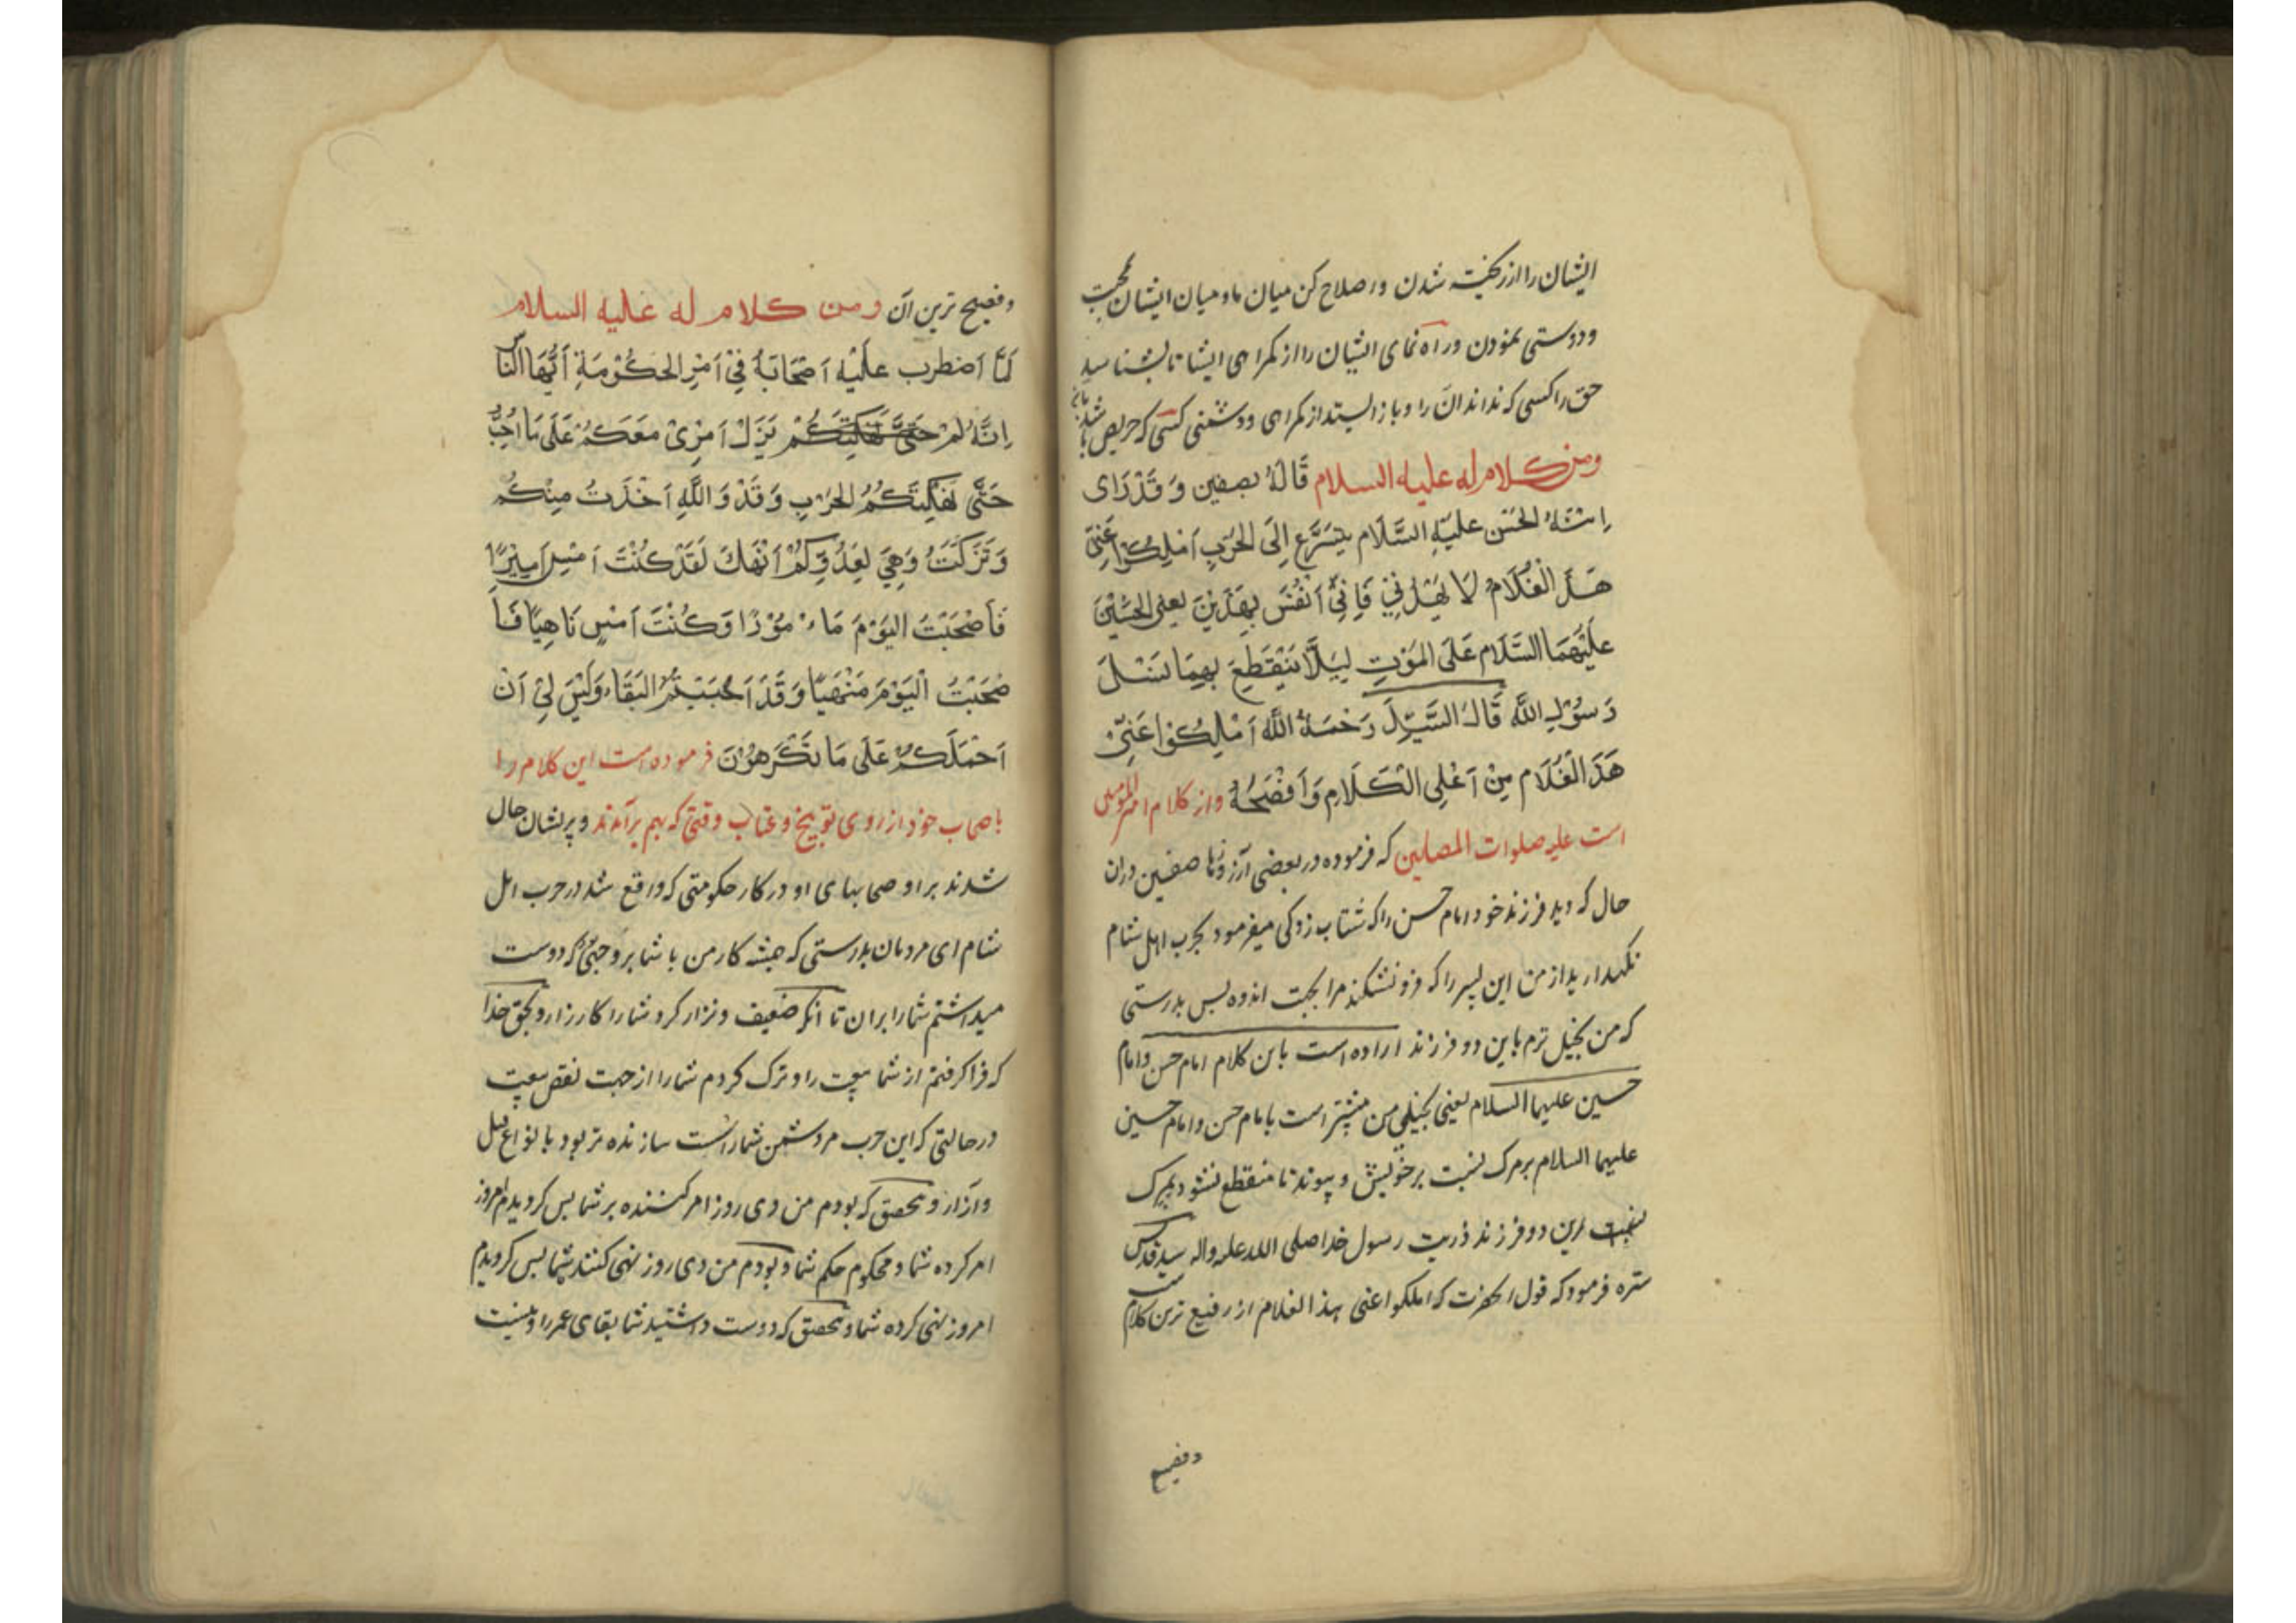 ایشان را از ریخته شدن و اصلاح کن میان ما و میان ایشان بجهت
ودوستی نمودن وراه نمای ایشان را از کمراهی ایشا تا بشناسد
حق را کسی که نداند آن را و باز ایستد از کمراهی ودشمنی کسی که حریص شده بان
ومن کلام له علیه السلام قَالَهُ بصفین وَقَدْ رَای
اِبْنَهُ الحَسَن علیْهِ السَّلَام یَتَسَرَّعُ اِلَی الحَرْبِ اَمْلِکُوا عَنِّی
هَذَ الْغُلَامُ لَا یَهُدُّنِی فَاِنِّی اَنْفَسُ بِهَذَیْنِ یعنی الحَسَنَیْنَ
عَلَیْهُمَا السَّلَام عَلَی المَوْتِ لِیَلَّا یَنْقَطِعَ بِهِمَا نَسْلَ
رَسُوْلِ اللَّه قَالَ السَّیِّدُ رَحْمَهُ اللَّه اَمْلِکُوا عَنِّی
هَذَ الْغُلَام مِنْ اَعْلی الْکَلَامِ وَاَفْصَحُهُ واز کلام امیر المومنین
است علیه صلوات المصلین که فرموده در بعضی از روزها صفین دران
حال که دید فرزند خود امام حسن را که شتاب زدکی میفرمود بحرب اهل شام
نکهدارید از من این پسر را که فرو نشکند مرا بجهت اندوه پس بدرستی
که من بخیل ترم باین دو فرزند اراده است باین کلام امام حسن وامام
حسین علیهما السلام یعنی بخیلی من بیشتر است بامام حسن وامام حسین
علیهما السلام بر مرک نسبت بر خویش و پیوند تا منقطع نشود بمرک
نسبت این دو فرزند ذریت رسول خدا صلی الله علیه واله سید قدس
سره فرمود که قول انحضرت که املکوا عنی هذا الغلام از رفیع ترین کلام است
وفصیح
وفصیح ترین آن ومن کلام له علیه السلام
لَمَّا اَضْطرب علَیْه اَصْحَابَهُ فِیْ اَمْرِ الحَکُوْمَةِ اَیُّهَا النَّاس
اِنَّهُ لَمْ حَتَّی نَهَکَتْکُمْ یَزَلْ اَمْرِیْ مَعَکُمْ عَلَی مَا اُحِبُّ
حَتَّی نَهَکَتْکُمُ الحَرْبِ وَقَدْ وَاللَّهِ اَخْذَتُ مِنْکُمْ
وَتَرَکَتُ وَهِیَ لِعَدُوِّکُمْ اَنْهَکُ لَقَدْ کُنْتَ اَمْسِ اَمِیْرًا
فَاَصْحَبَتُ الیَوْمَ مَاءْمُوْرًا وَکُنْتَ اَمْسِ نَاهِیًا فَاَ
صْحَبَتُ الْیَوْمَ مَنْهِیًّا وَقَدْ اَحْبَبْتُمُ البَقَاءَ وَلَیْسَ لِیْ اَنْ
اَحْمَلَکُمْ عَلَی مَا تَکْرَهُوْنَ فرموده است این کلام را
باصحاب خود از روی توبیخ وعتاب وقتی که بهم برآمدند وپریشان حال
شدند بر او صحابهای او در کار حکومتی که واقع شد در حرب اهل
شام ای مردمان بدرستی که همیشه کار من با شما بر وجهی که دوست
میداشتم شما را بران تا انکه ضعیف ونزار کرد شما را کارزار وبحق خدا
که فرا کرفتم از شما بیعت را وترک کردم شما را از جهت نقص بیعت
در حالتی که این حرب مر دشمن شما راست سازنده تر بود بانواع قتل
وآزار وبتحقیق که بودم من دی روز امر کننده بر شما پس کردیدم امروز
امر کرده شما ومحکوم حکم شما وبودم من دی روز نهی کننده شما پس کردیدم
امروز نهی کرده شما وبتحقیق که دوست داشتید شما بقای عمر را ونیست